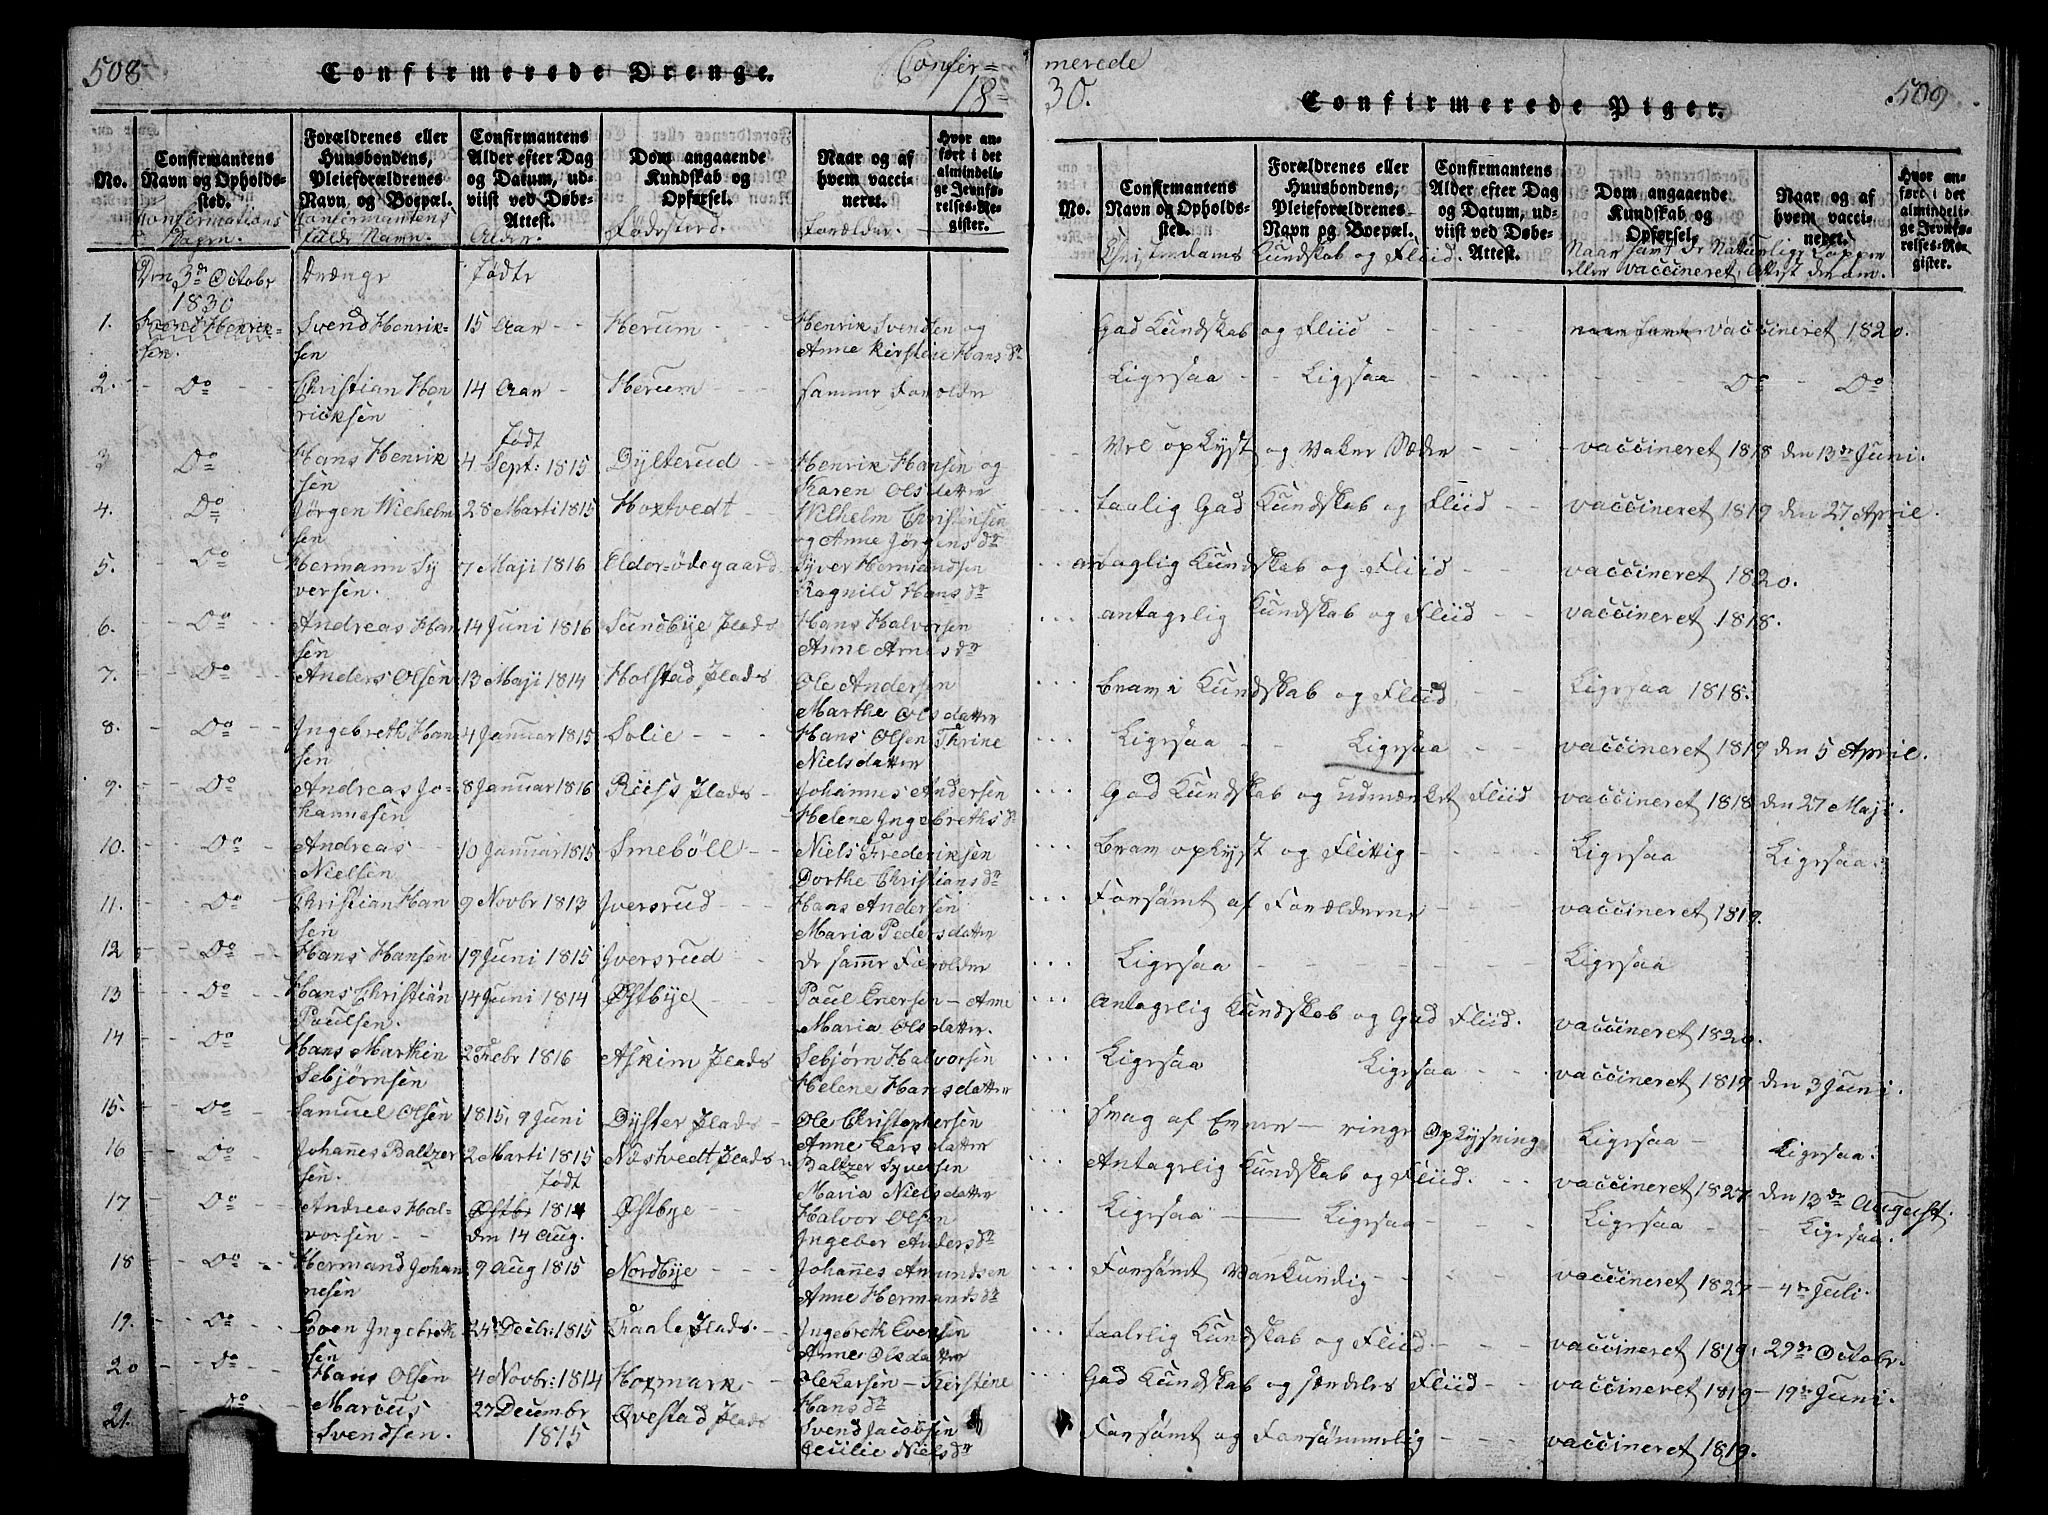 508
Confirmerede Drenge.
Confir=
18=
No.
Confirmantens Navn og Opholds-sted.
Forældrenes eller Huusbondens, Pleieforældrenes Navn og Boepæl.
Confirmantens Alder efter Dag og Datum, ud-viist ved Døbe-Attest.
Dom angaaende Kundskab og Opførsel.
Naar og af hvem vacci-neret.
Hvor an-ført i det almindeli-ge Jevnfø-relses-Re-gister.
Confirmations Dagen.
Confirmantens fulde Navn.
Alder.
Fødested.
Forældre.
Den 3de Octobr 1830
Drænge
Fødte
1. Svend Henrik-sen. Svend Henrik-sen 15 Aar Herum Henrik Svendsen og Anne Kirstine Hans dr
2. Do Christian Hen ricksen 14 Aar Herum samme Forældre
3 Do Hans Henrik sen Født 4 Sept: 1815 Dÿlterud Henrik Hansen og Karen Olsdatter
4. Do Jörgen Wiehelm sen 28 Marti 1815 Hoxtvedt Wilhelm Christensen og Anne Jörgens dr
5. Do Hermann Sy versen. 7 Maji 1816 Elder-ødegaard Syver Hermandsen Ragnild Hans dr
6. Do Andreas Han sen 14 Juni 1816 Sundbÿe Plads Hans Halvorsen Anne Arnes dr
7. Do Anders Olsen 13 Maji 1814 Holstad Plads Ole Andersen Marthe Olsdatter
8. Do Ingebreth Han sen 4 Januar 1815 Solie Hans Olsen Thrine Nielsdatter
9. Do Andreas Jo-hannssen 8 Januar 1816 Riis Plads Johannes Andersen Helene Ingebreths dr
10. Do Andreas Nielsen 10 Januar 1815 Smeböll Niels Frederiksen Dorthe Christians dr
11. Do Christian Han sen 9 Novbr 1813 Iversrud Hans Andersen Maria Pedersdatter
12 Do Hans Hansen 19 Juni 1815 Iversrud de samme Forældre
13 Do Hans Christian Paulsen. 14 Juni 1814 Østbye Paul Enersen - Anne Maria Olsdatter.
14 Do Hans Marthin Sebjørnsen 2 Febr 1816 Askim Plads Sebjørn Halvorsen Helene Hansdatter
15. Do Samuel Olsen 1815, 9 Juni Dÿster Plads Ole Christophersen Anne Larsdatter
16 Do Johannes Baltzer sen. 2 Marti 1815 Nøstvedt Plads Baltzer Syversen Maria Nielsdatter
17 Do Andreas Hal-vorsen Født Østb. 1814 den 14 Aug. Østbye Halvor Olsen Ingeber Anders dr
18 Do Hermand Johan nesen 9 Aug 1815 Nordbye Johannes Amundsen Anne Hermands dr
19. Do Even Ingebreth sen 24 Decbr: 1815 Taale Plads. Ingebreth Evensen Anne Olsdatter
20 Do Hans Olsen 4 Novbr: 1814 Hoxmark Ole Larsen - Kirstine Hans dr
21. do Marcus Svendsen. 27 Decembr 1815 Øvestad Plads Svend Jacobsen Cecilie Niels dr
merede
30.
Confirmerede Piger.
509
No.
Confirmantens Navn og Opholds-sted.
Forældrenes eller Huusbondens, Pleieforældrenes Navn og Boepæl.
Confirmantens Alder efter Dag og Datum, ud-viist ved Døbe-Attest.
Dom angaaende Kundskab og Opførsel.
Naar og af hvem vacci-neret.
Hvor an-ført i det almindeli-ge Jevnfø-relses-Re-gister.
Christendoms Kundskab og Fliid.
Naar havt de Naturlige Kopper eller vaccineret, Attest derom.
God Kundskab og Fliid vaccineret 1820.
Ligesaa Ligesaa Do Do
Vel oplyst og Vaker Sæder vaccineret 1818 den 13de Juni.
taalig God Kundskab og Fliid vaccineret 1819 den 27 April.
antaglig Kundskab og Fliid vaccineret 1820.
antagelig Kundskab og Fliid vaccineret 1818.
bram i Kundskab og Fliid Ligesaa 1818.
Ligesaa Ligesaa vaccineret 1819 den 5 April.
God Kundskab og udmærket Fliid vaccineret 1818 den 27 Maji.
bram oplyst og Flittig Ligesaa Ligesaa.
Forsömt af Forælderne vaccineret 1819.
Ligesaa Ligesaa
Antagelig Kundskab og God Fliid. vaccineret 1820.
Ligesaa Ligesaa vaccineret 1819 den 3 Juni.
svag af Evner - ringe Oplysning Ligesaa Ligesaa.
Antagelig Kundskab og Fliid. vaccineret 1827 den 13de August.
Ligesaa Ligesaa Ligesaa Ligesaa.
Forsömt Vankundig vaccineret 1827 - 4de Juli.
taalelig Kundskab og Fliid vaccineret 1819, 29de Octobr.
God Kundskab og særdeles Fliid vaccineret 1819 - 19de Juni.
Forsömt og Forsömmelig vaccineret 1819.